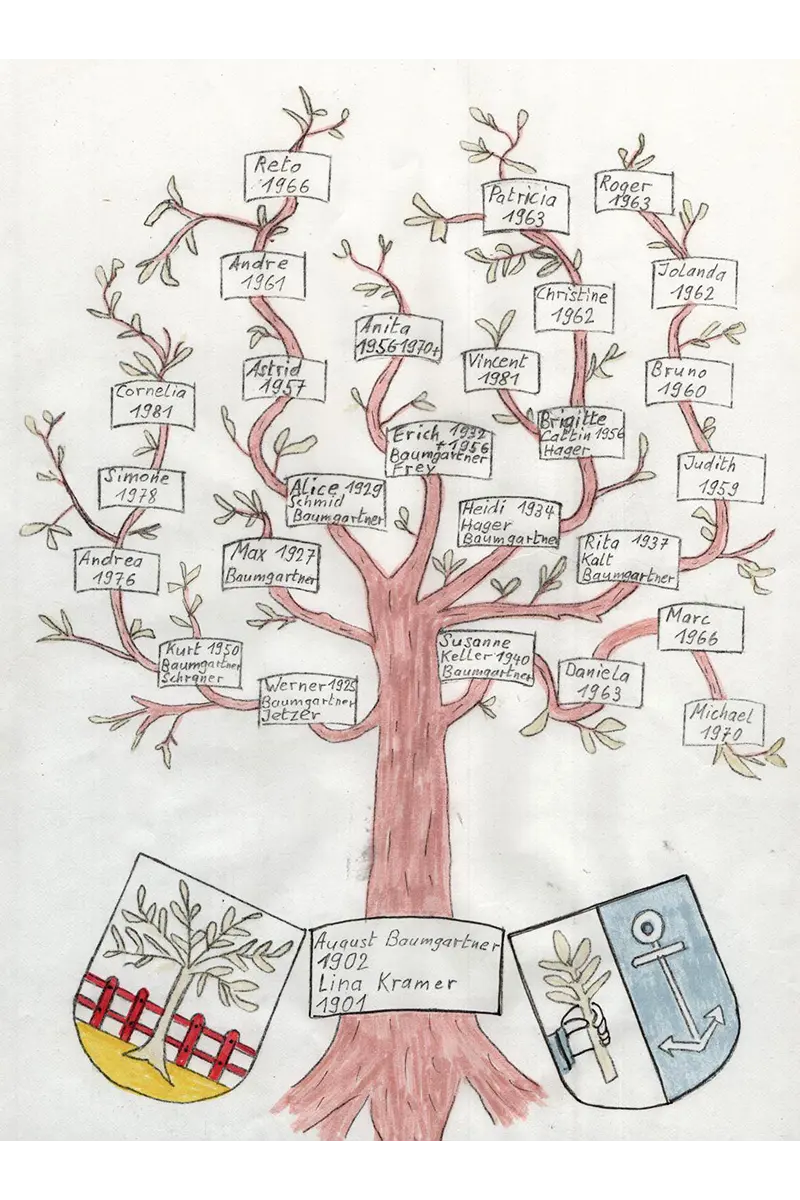 Reto
1966
Patricia
1963
Roger
1963
Andre
1961
Jolanda
1962
Christine
1962
Anita
1956 1970+
Vincent
1981
Astrid
1957
Bruno
1960
Cornelia
1981
Brigitte
Cattin 1956
Hager
Erich 1932
+1956
Baumgartner
Frey
Judith
1959
Simone
1978
Alice 1929
Schmid
Baumgartner
Heidi 1934
Hager
Baumgartner
Andrea
1976
Max 1927
Baumgartner
Rita 1937
Kalt
Baumgartner
Marc
1966
Kurt 1950
Baumgartner
Susanne
Keller 1940
Baumgartner
Daniela
1963
Werner 1925
Baumgartner
Jetzer
Michael
1970
August Baumgartner
1902
Lina Kramer
1901